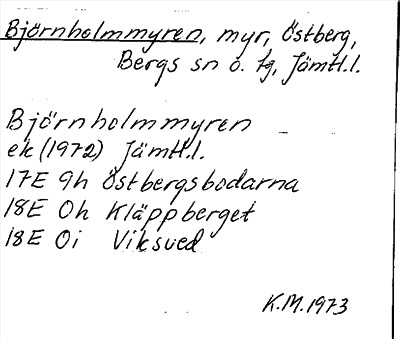 Björnholmmyren, myr, Östberg,
Bergs sn o. tg, Jämtl.l.
Björnholmmyren
ek (1972) Jämtl.l.
17E 9h Östbergsbodarna
18E 0h Kläppberget
18E 0i Viksved
K.M. 1973